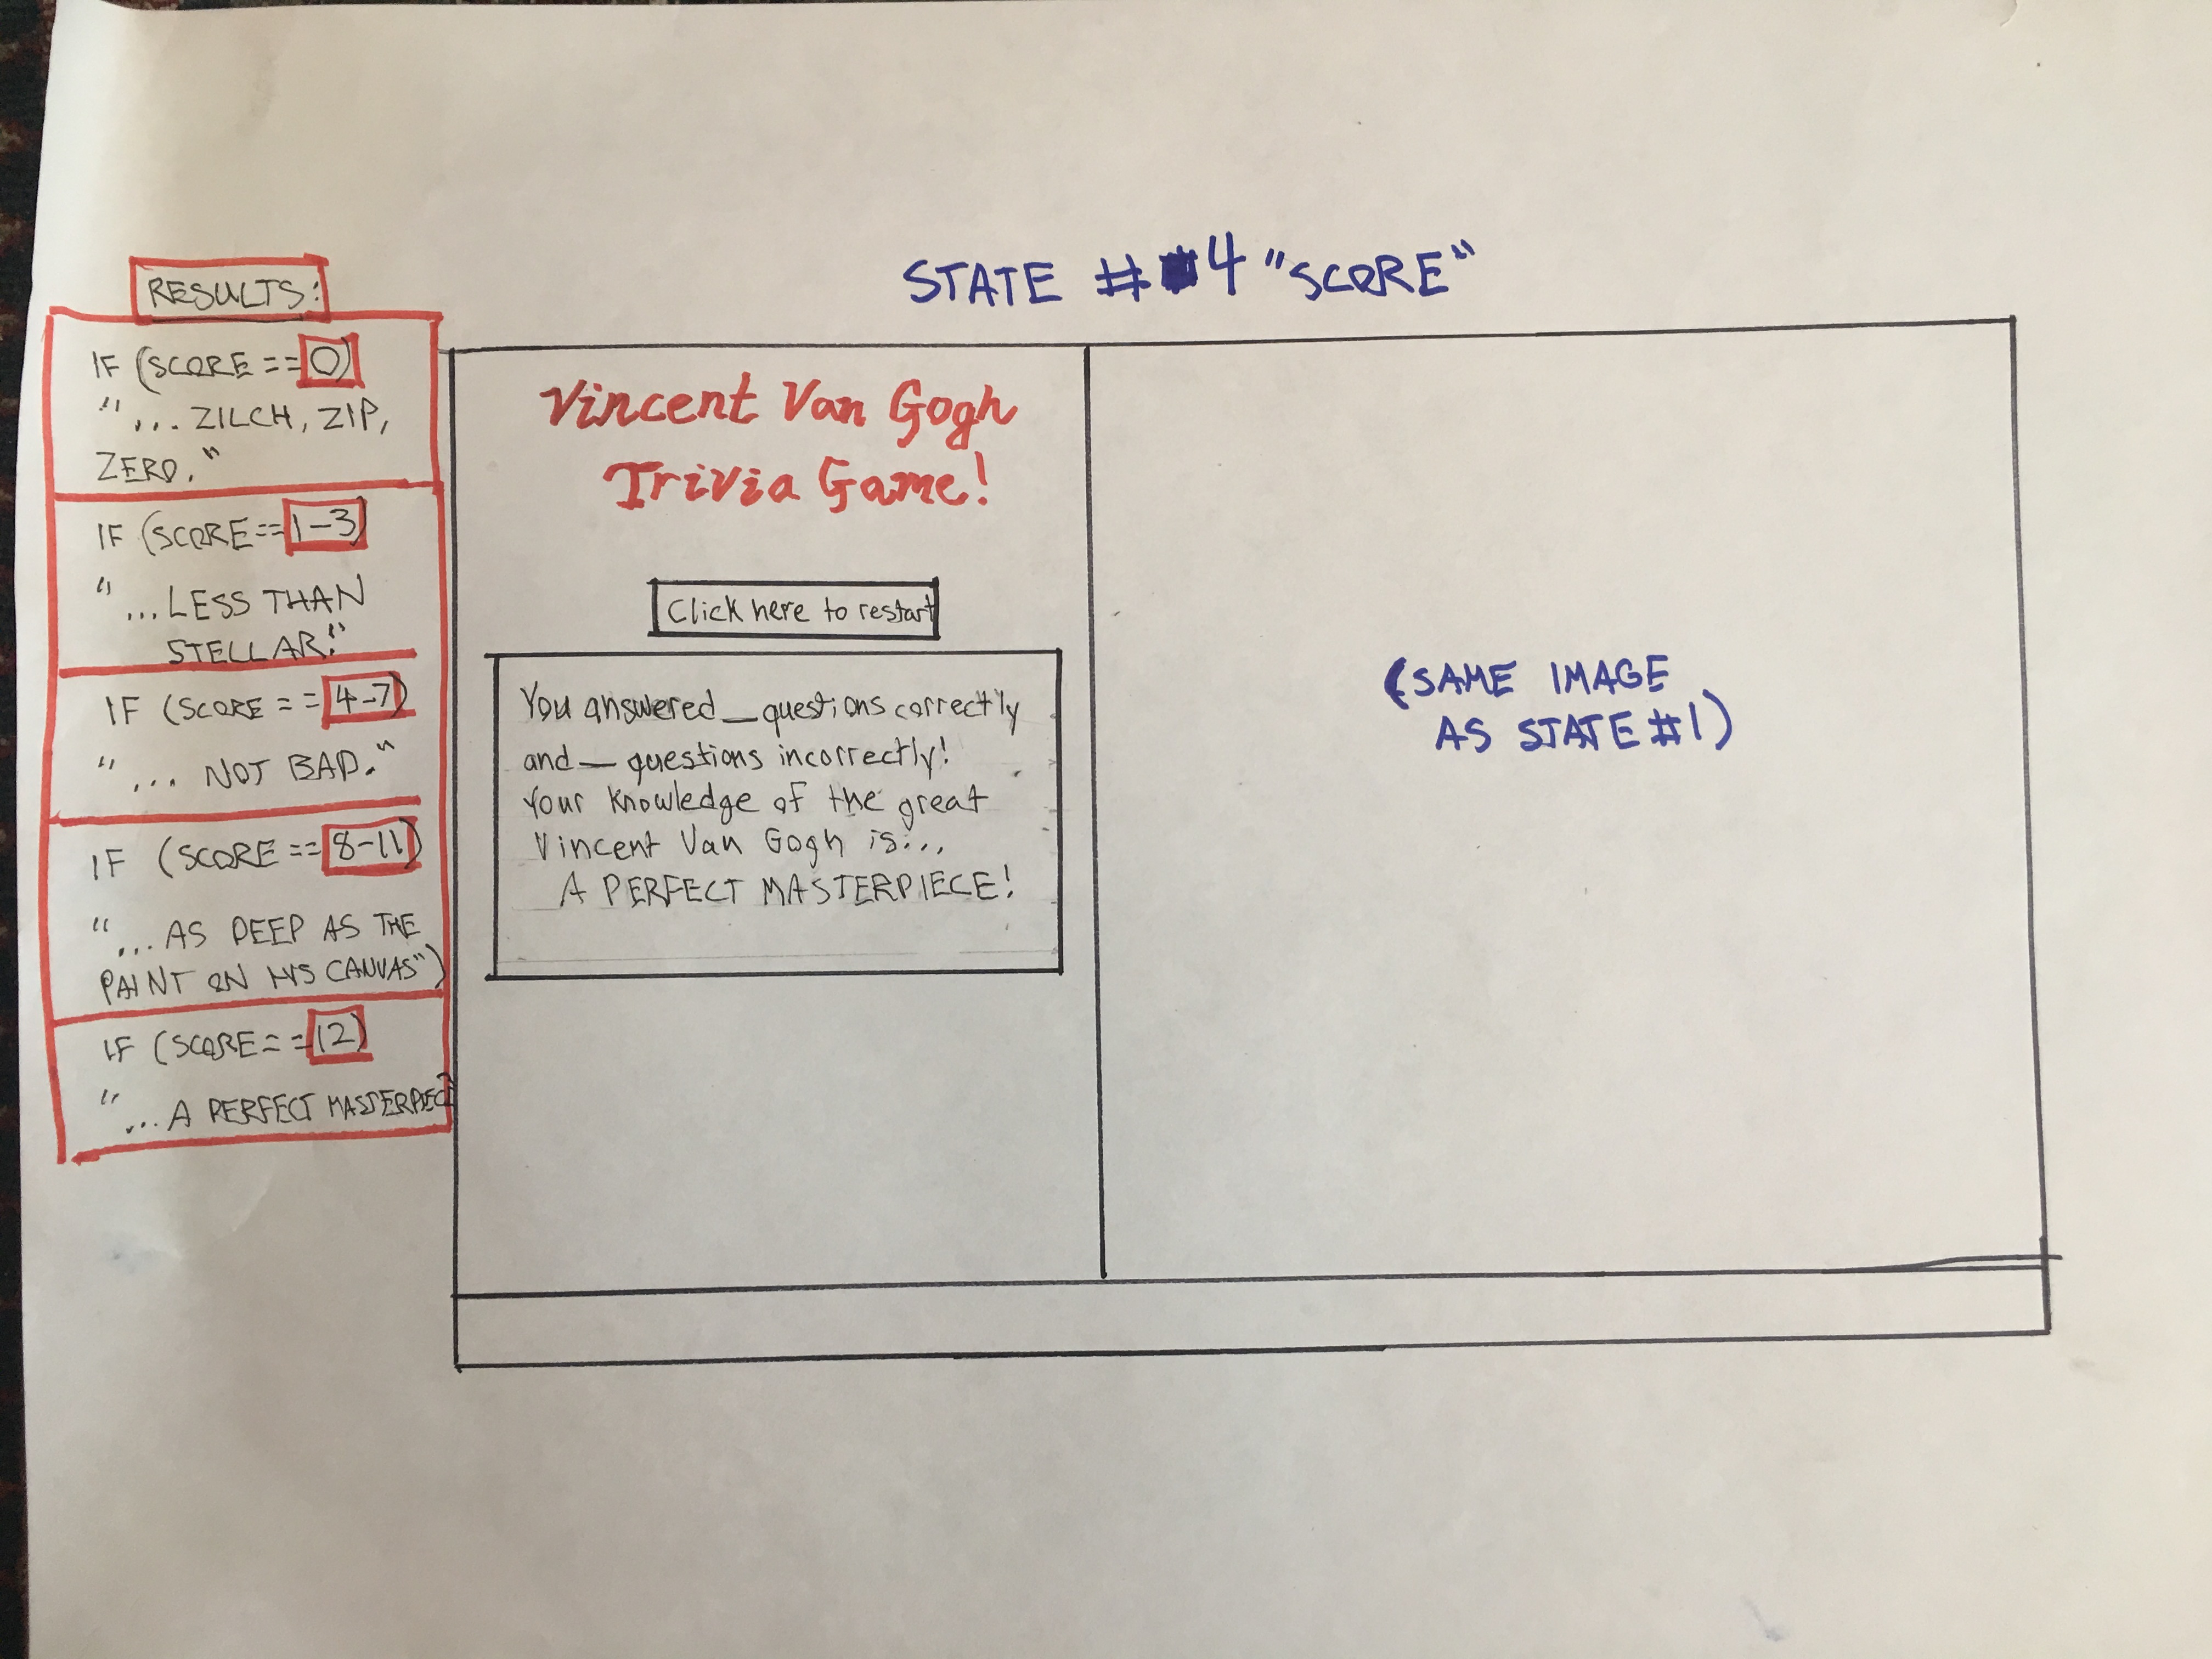 STATE #4 "SCORE"
RESULTS:
IF (SCORE == 0)
"... ZILCH, ZIP,
ZERO."
IF (SCORE == 1-3)
"...LESS THAN
STELLAR."
IF (SCORE == 4-7)
"... NOT BAD."
IF (SCORE == 8-11)
"...AS DEEP AS THE
PAINT ON HIS CANVAS")
IF (SCORE == 12)
"...A PERFECT MASTERPIECE
Vincent Van Gogh
Trivia Game!
Click here to restart
You answered __ questions correctly
and __ questions incorrectly!
Your knowledge of the great
Vincent Van Gogh is...
A PERFECT MASTERPIECE!
(SAME IMAGE
AS STATE #1)